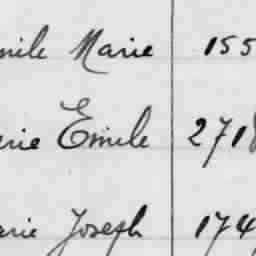 mile Marie 155
erie Emile 2718
arie Joseph 174